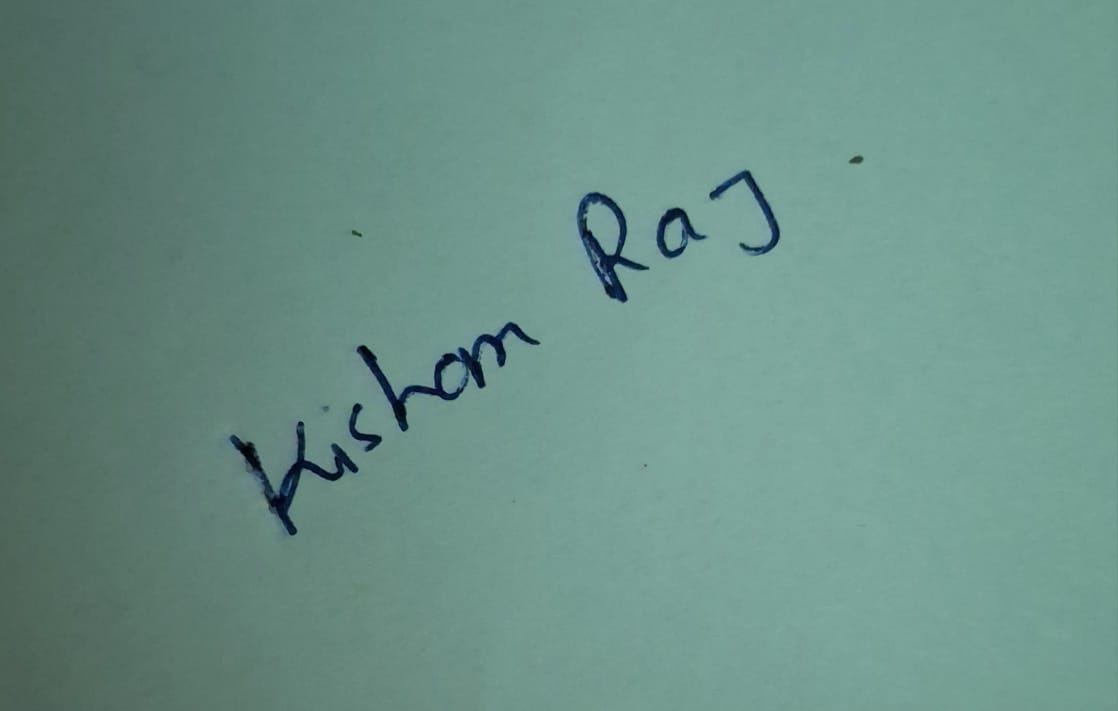 Kisham Raj